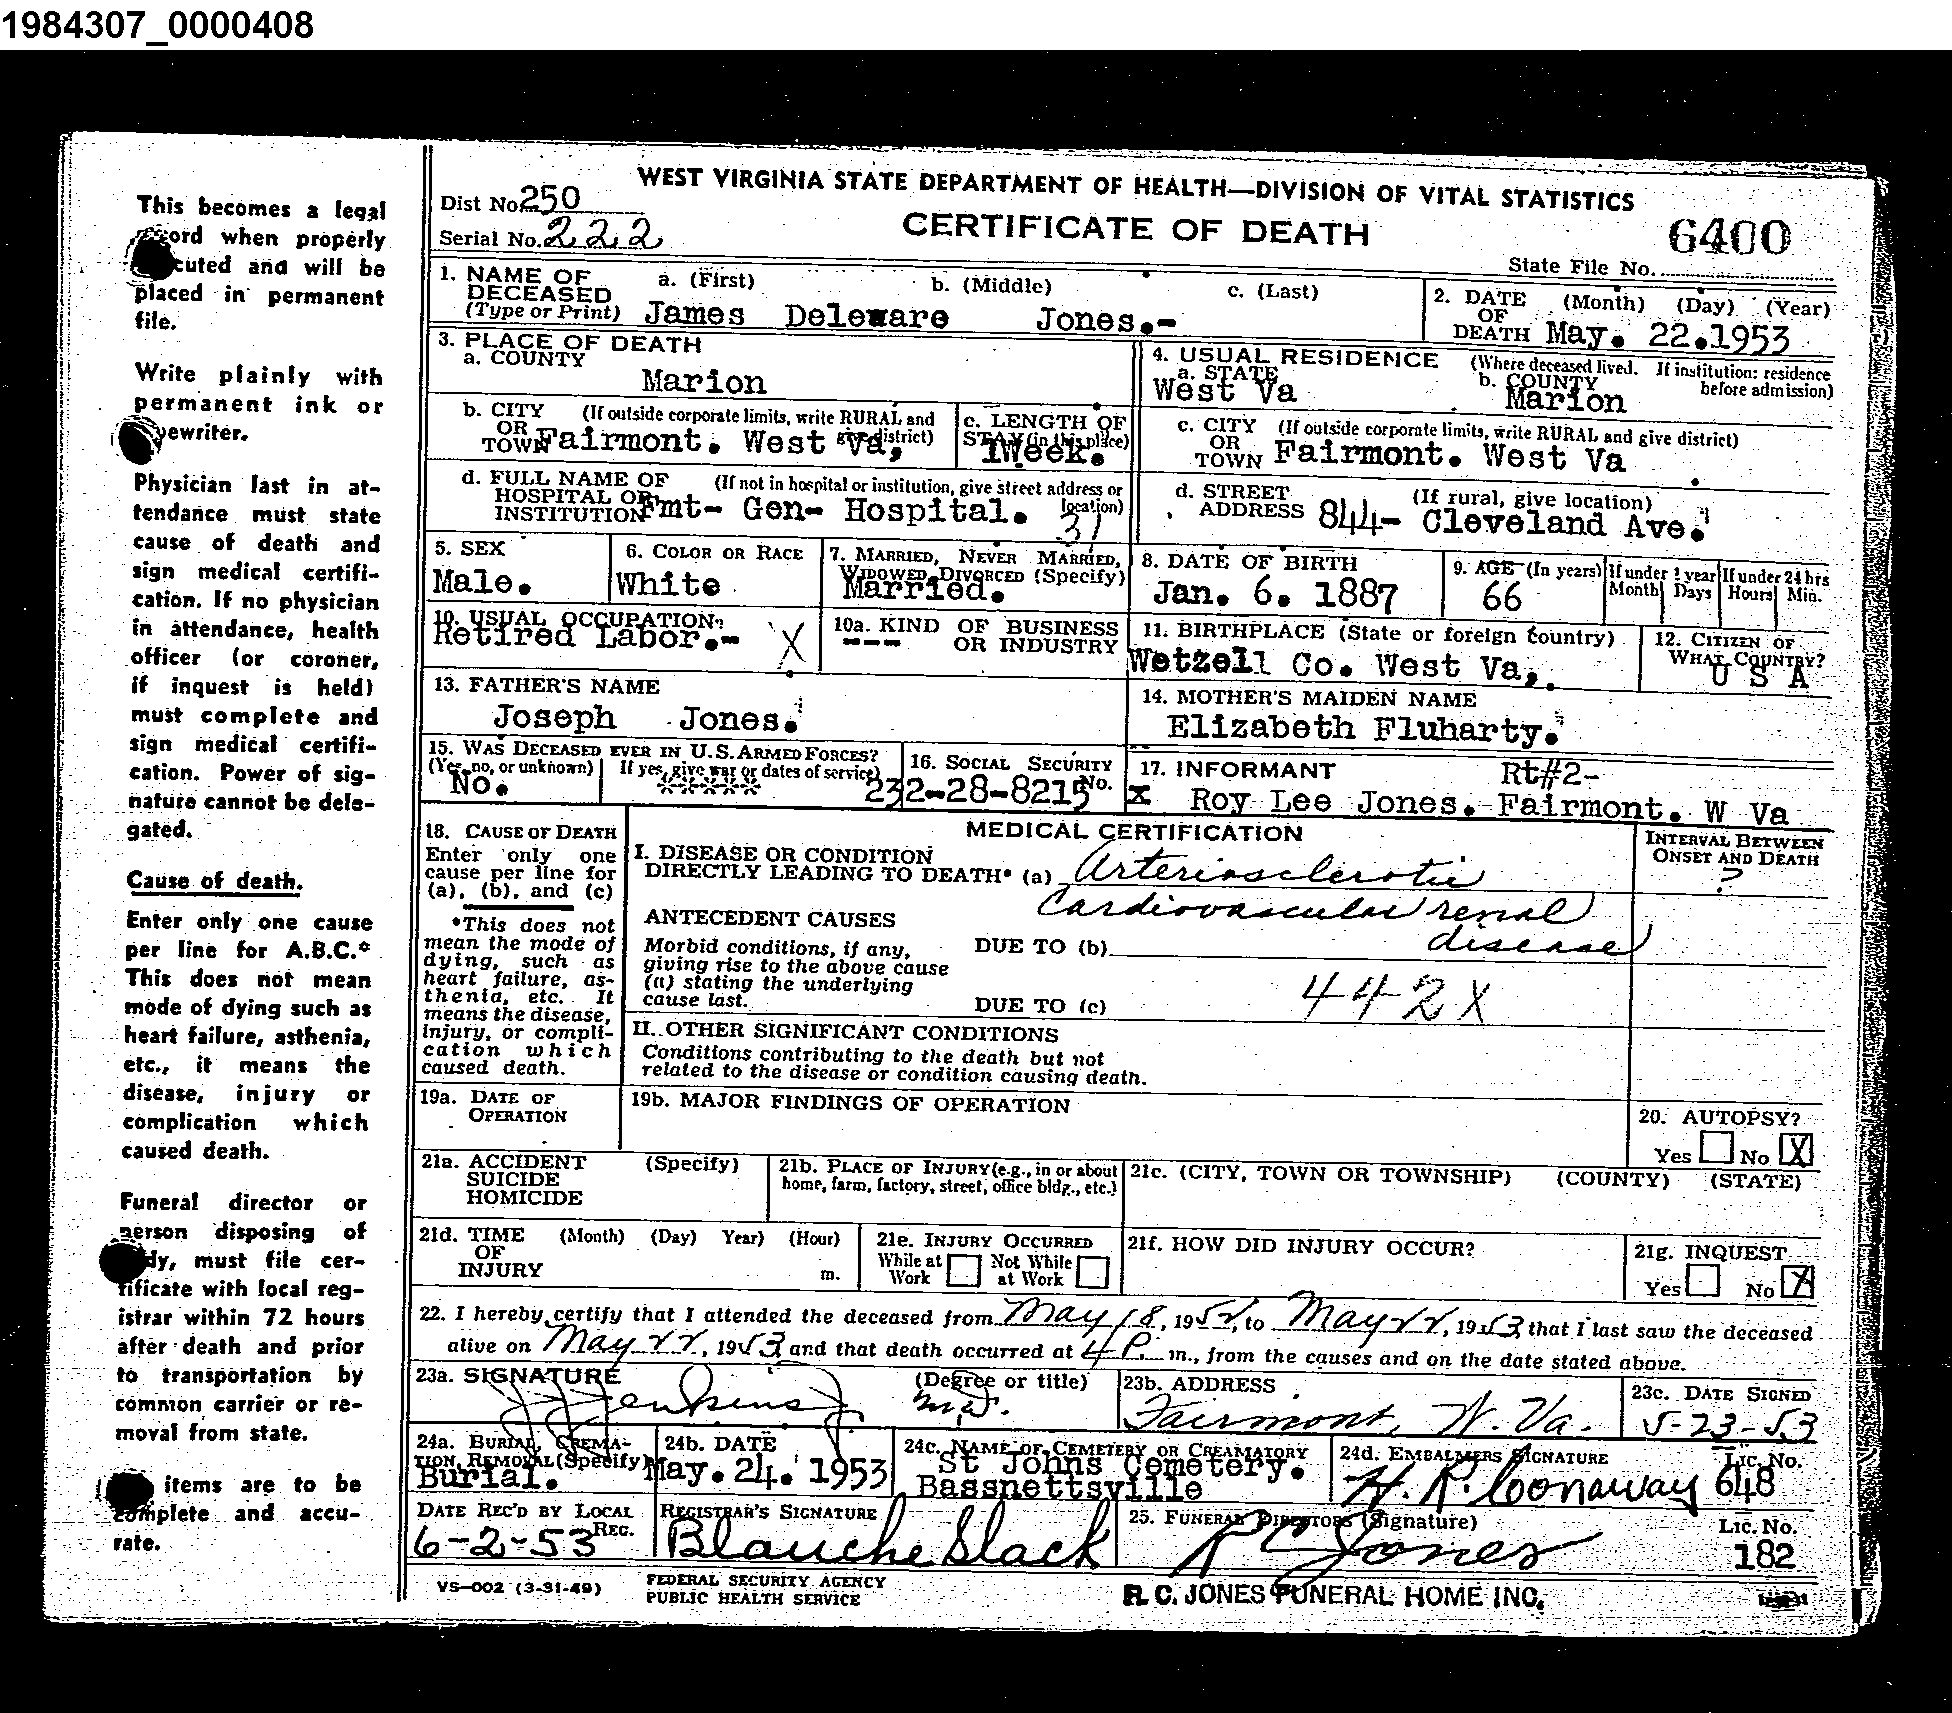 1984307_0000408
WEST VIRGINIA STATE DEPARTMENT OF HEALTH—DIVISION OF VITAL STATISTICS
CERTIFICATE OF DEATH
Dist No. 250
Serial No. 222
6400
State File No.
This becomes a legal
cord when properly
cuted and will be
placed in permanent
file.
Write plainly with
permanent ink or
yewriter.
Physician last in at-
tendance must state
cause of death and
sign medical certifi-
cation. If no physician
in attendance, health
officer (or coroner,
if inquest is held)
must complete and
sign medical certifi-
cation. Power of sig-
nature cannot be dele-
gated.
Cause of death.
Enter only one cause
per line for A.B.C.*
This does not mean
mode of dying such as
heart failure, asthenia,
etc., it means the
disease, injury or
complication which
caused death.
Funeral director or
person disposing of
dy, must file cer-
tificate with local reg-
istrar within 72 hours
after death and prior
to transportation by
common carrier or re-
moval from state.
items are to be
complete and accu-
rate.
1. NAME OF DECEASED (Type or Print) a. (First) b. (Middle) c. (Last)
James Deleware Jones.-
2. DATE OF DEATH (Month) (Day) (Year)
May. 22.1953
3. PLACE OF DEATH
a. COUNTY
Marion
4. USUAL RESIDENCE (Where deceased lived. If institution: residence before admission)
a. STATE
West Va
b. COUNTY
Marion
b. CITY OR TOWN (If outside corporate limits, write RURAL and give district)
Fairmont. West Va,
c. LENGTH OF STAY (in this place)
1Week.
c. CITY OR TOWN (If outside corporate limits, write RURAL and give district)
Fairmont. West Va
d. FULL NAME OF HOSPITAL OR INSTITUTION (If not in hospital or institution, give street address or location)
Fmt- Gen- Hospital. 31
d. STREET ADDRESS (If rural, give location)
844- Cleveland Ave.
5. SEX
Male.
6. COLOR OR RACE
White
7. MARRIED, NEVER MARRIED, WIDOWED, DIVORCED (Specify)
Married.
8. DATE OF BIRTH
Jan. 6. 1887
9. AGE (In years)
66
If under 1 year Month Days
If under 24 hrs Hours Min.
10. USUAL OCCUPATION
Retired Labor.- X
10a. KIND OF BUSINESS OR INDUSTRY
---
11. BIRTHPLACE (State or foreign country)
Wetzell Co. West Va,.
12. CITIZEN OF WHAT COUNTRY?
U S A
13. FATHER'S NAME
Joseph Jones.
14. MOTHER'S MAIDEN NAME
Elizabeth Fluharty.
15. WAS DECEASED EVER IN U.S. ARMED FORCES?
(Yes, no, or unknown) If yes, give war or dates of service)
No. *****
16. SOCIAL SECURITY No.
232-28-8215
17. INFORMANT Rt#2-
x Roy Lee Jones. Fairmont. W Va
18. CAUSE OF DEATH
Enter only one
cause per line for
(a), (b), and (c)
*This does not
mean the mode of
dying, such as
heart failure, as-
thenia, etc. It
means the disease,
injury, or compli-
cation which
caused death.
MEDICAL CERTIFICATION
INTERVAL BETWEEN ONSET AND DEATH
?
I. DISEASE OR CONDITION
DIRECTLY LEADING TO DEATH* (a) Arteriosclerotic
Cardiovascular renal
disease
ANTECEDENT CAUSES
Morbid conditions, if any,
giving rise to the above cause
(a) stating the underlying
cause last.
DUE TO (b)
DUE TO (c)
442X
II. OTHER SIGNIFICANT CONDITIONS
Conditions contributing to the death but not
related to the disease or condition causing death.
19a. DATE OF OPERATION
19b. MAJOR FINDINGS OF OPERATION
20. AUTOPSY?
Yes No X
21a. ACCIDENT SUICIDE HOMICIDE (Specify)
21b. PLACE OF INJURY (e.g., in or about home, farm, factory, street, office bldg., etc.)
21c. (CITY, TOWN OR TOWNSHIP) (COUNTY) (STATE)
21d. TIME OF INJURY (Month) (Day) Year) (Hour) m.
21e. INJURY OCCURRED
While at Work Not While at Work
21f. HOW DID INJURY OCCUR?
21g. INQUEST
Yes No X
22. I hereby certify that I attended the deceased from May 18, 1952, to May 22, 1953, that I last saw the deceased
alive on May 22, 1953, and that death occurred at 4 P. m., from the causes and on the date stated above.
23a. SIGNATURE (Degree or title)
Jenkins M.D.
23b. ADDRESS
Fairmont, W. Va.
23c. DATE SIGNED
5-23-53
24a. BURIAL, CREMATION, REMOVAL (Specify)
Burial.
24b. DATE
May. 24. 1953
24c. NAME OF CEMETERY OR CREAMATORY
St Johns Cemetery.
Bassnettsville
24d. EMBALMERS SIGNATURE Lic. No.
H. R. Conaway 648
DATE REC'D BY LOCAL REG.
6-2-53
REGISTRAR'S SIGNATURE
Blanche Slack
25. FUNERAL DIRECTORS (Signature) Lic. No.
R C Jones 182
VS-002 (3-31-49)
FEDERAL SECURITY AGENCY
PUBLIC HEALTH SERVICE
R. C. JONES FUNERAL HOME INC.